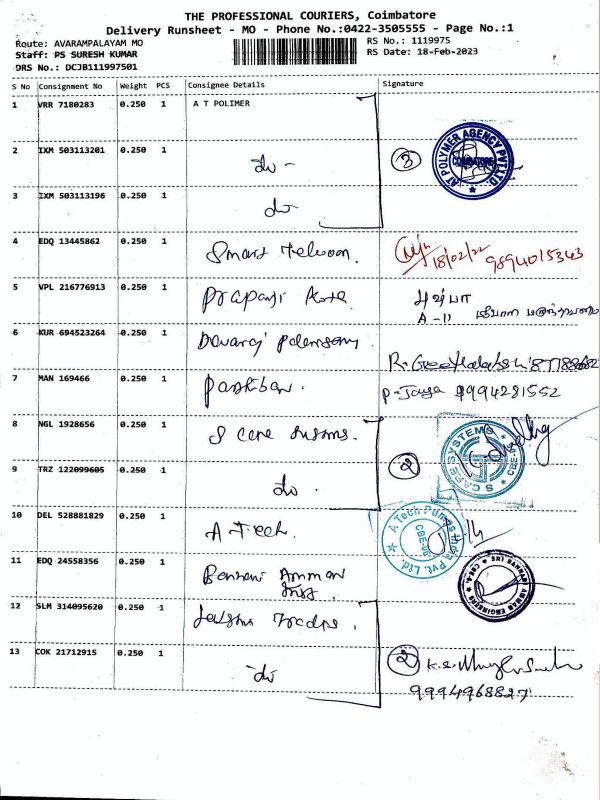 THE PROFESSIONAL COURIERS, Coimbatore
Delivery Runsheet - MO - Phone No.:0422-3505555 - Page No.:1
Route: AVARAMPALAYAM MO
RS No.: 1119975
Staff: PS SURESH KUMAR
RS Date: 18-Feb-2023
DRS No.: DCJB111997501
S No Consignment No Weight PCS Consignee Details Signature
1 VRR 7180283 0.250 1 A T POLIMER
2 IXM 503113201 0.250 1 do - 3 AT POLYMER AGENCY PVT LTD. COIMBATORE
3 IXM 503113196 0.250 1 do
4 EDQ 13445862 0.250 1 Smart 18/02/22 9894015343
5 VPL 216776913 0.250 1 புஷ்பா
A-11
6 KUR 694523264 0.250 1 Devaraj
7 MAN 169466 0.250 1 Parthiban. P-Jaya 9994281552
8 NGL 1928656 0.250 1 S care
S CARE SYSTEMS CBE
9 TRZ 122099605 0.250 1 do. 2
10 DEL 528881829 0.250 1 A Tech.
A Tech Pumps India Pvt. Ltd. CBE-06
11 EDQ 24558356 0.250 1 Bannari Amman
SRI BANNARI AMMAN ENGINEERS CBE-6
12 SLM 314095620 0.250 1
13 COK 21712915 0.250 1 do 2
9994968827